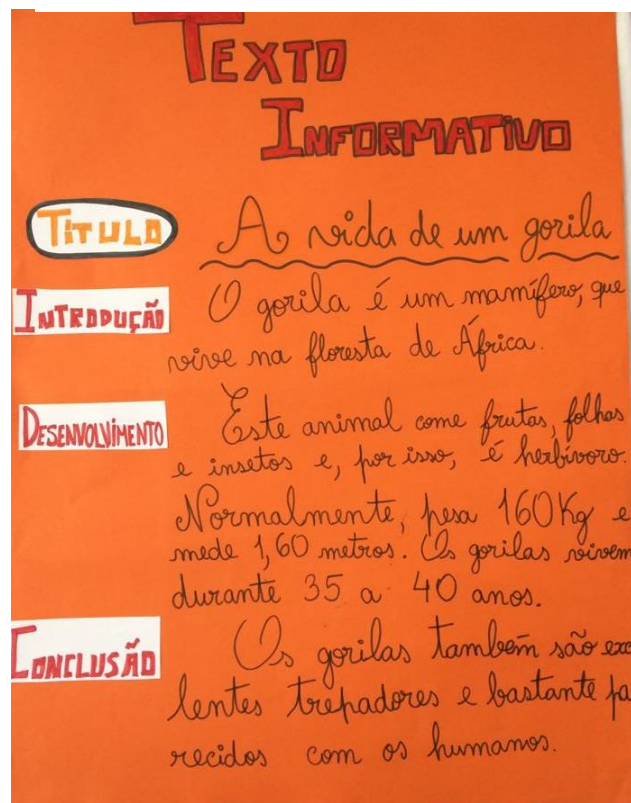 TEXTO
INFORMATIVO
TÍTULO
A vida de um gorila
INTRODUÇÃO
O gorila é um mamífero, que
vive na floresta de África.
DESENVOLVIMENTO
Este animal come frutas, folhas
e insetos e, por isso, é herbívoro.
Normalmente, pesa 160Kg e
mede 1,60 metros. Os gorilas vivem
durante 35 a 40 anos.
CONCLUSÃO
Os gorilas também são exc
lentes trepadores e bastante pa
recidos com os humanos.